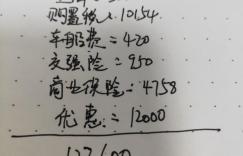 购置税: 10154
车船费 = 420
交强险 = 950
商业保险 = 4758
优惠 = 12000